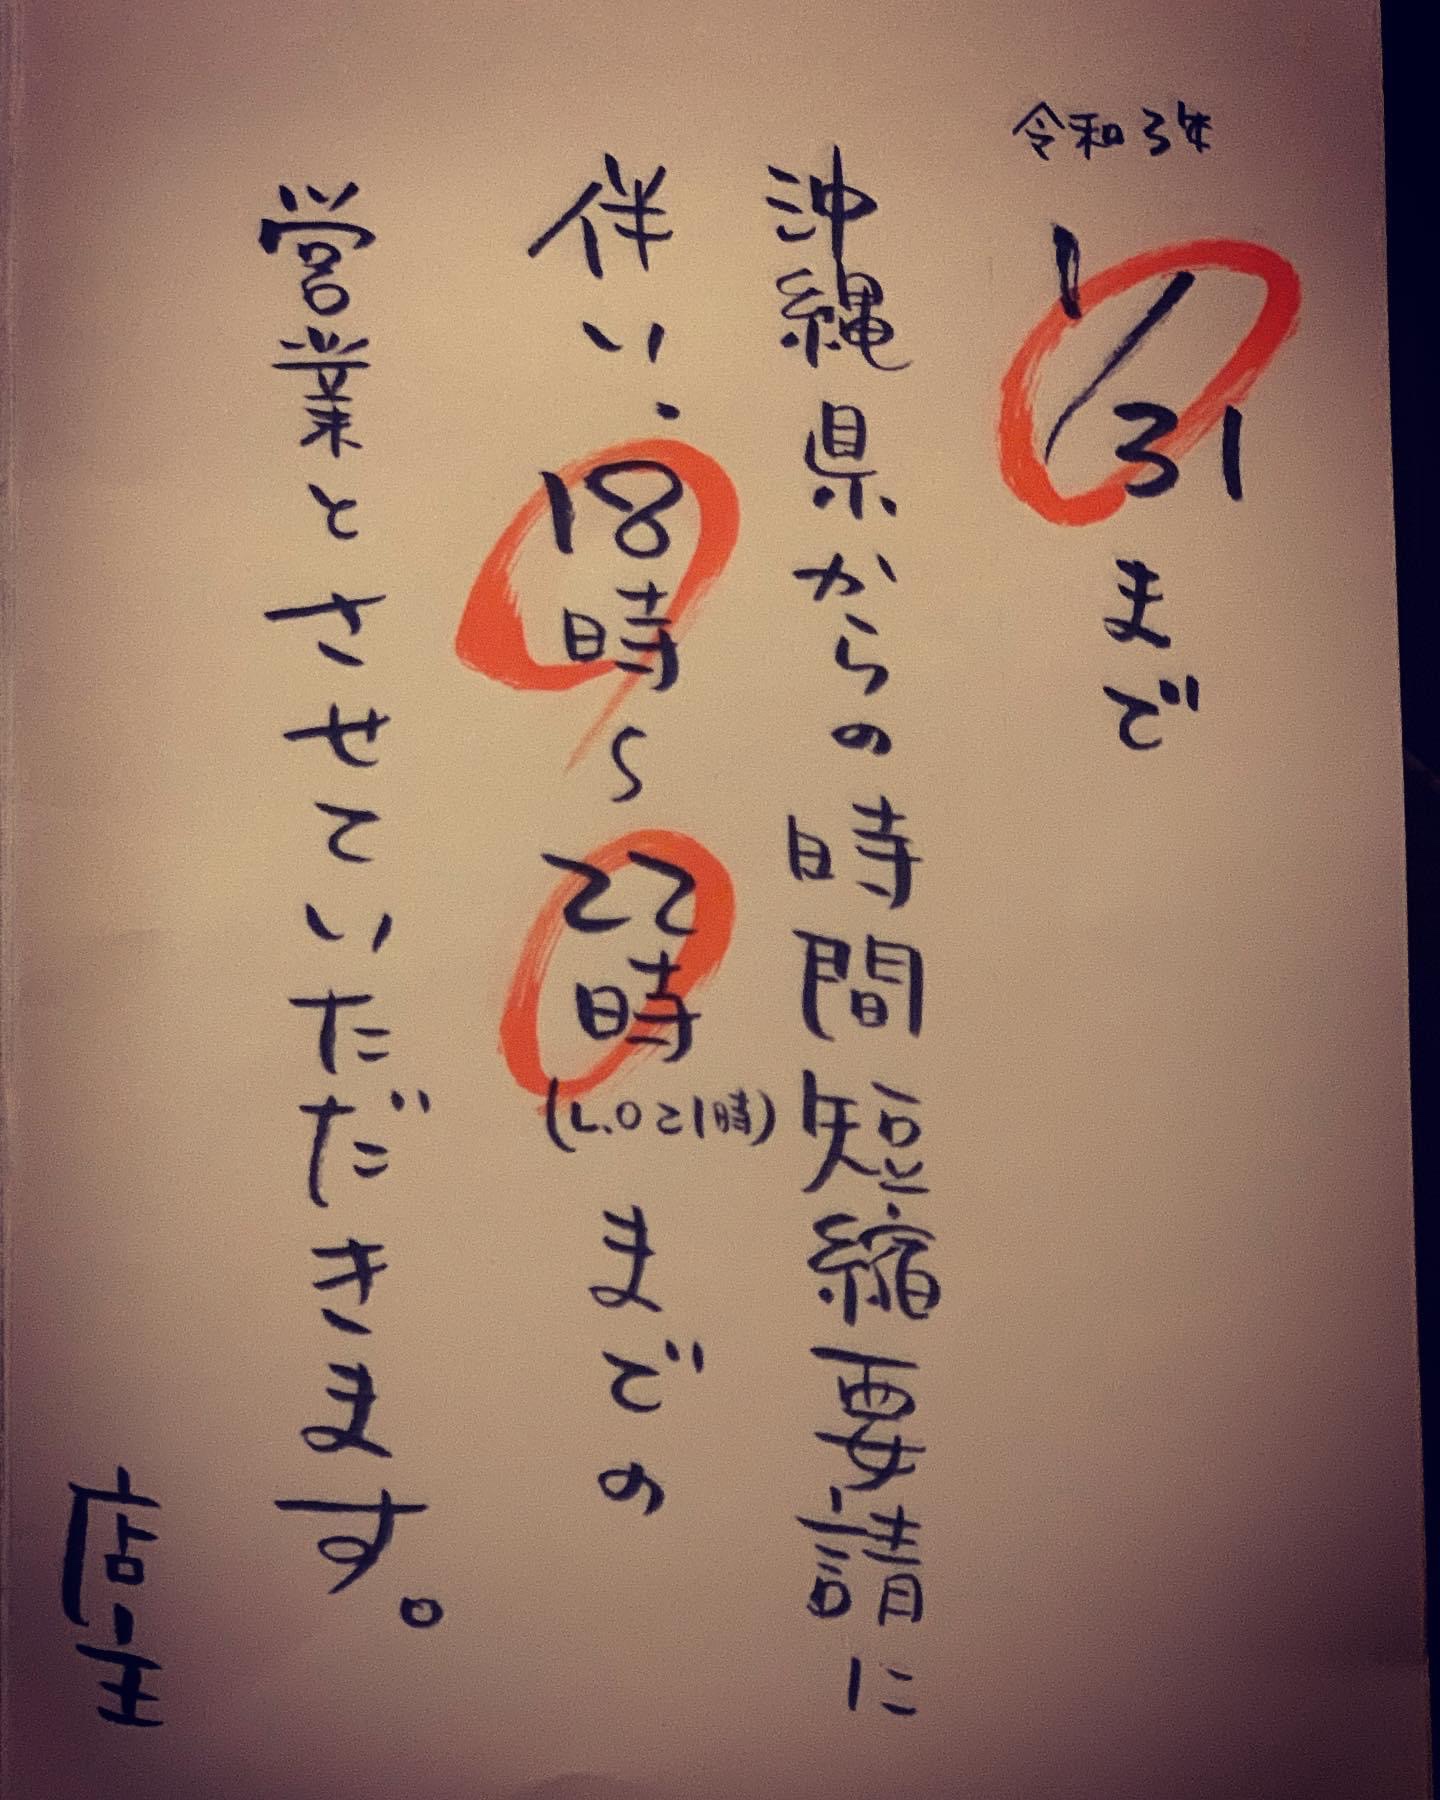 令和3年
1/31まで
沖縄県からの時間短縮要請に
伴い、18時〜22時(L.O21時)までの
営業とさせていただきます。